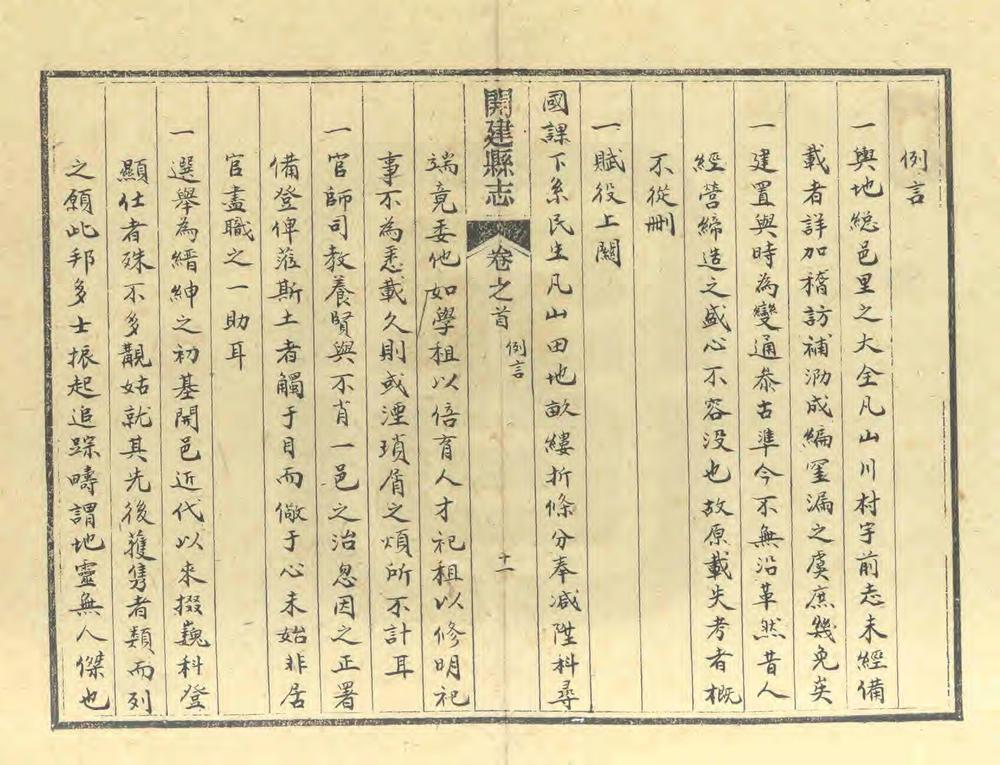 例言
一輿地總邑里之大全凡山川村宇前志未經備
載者詳加稽訪補泐成編罣漏之虞庶幾免矣
一建置與時為變通叅古準今不無沿革然昔人
經營締造之盛心不容没也故原載失考者概
不從刪
一賦役上關
國課下系民生凡山田地畝縷折條分奉减陞科尋
開建縣志
卷之首
例言
十一
端竟委他如學租以倍育人才祀租以修明祀
事不為悉載久則或湮瑣屑之煩所不計耳
一官師司教養賢與不肖一邑之治忽因之正署
備登俾蒞斯土者觸于目而儆于心未始非居
官盡職之一助耳
一選舉為縉紳之初基開邑近代以來掇巍科登
顯仕者殊不多覯姑就其先後獲雋者類而列
之願此邦多士振起追踪疇謂地靈無人傑也